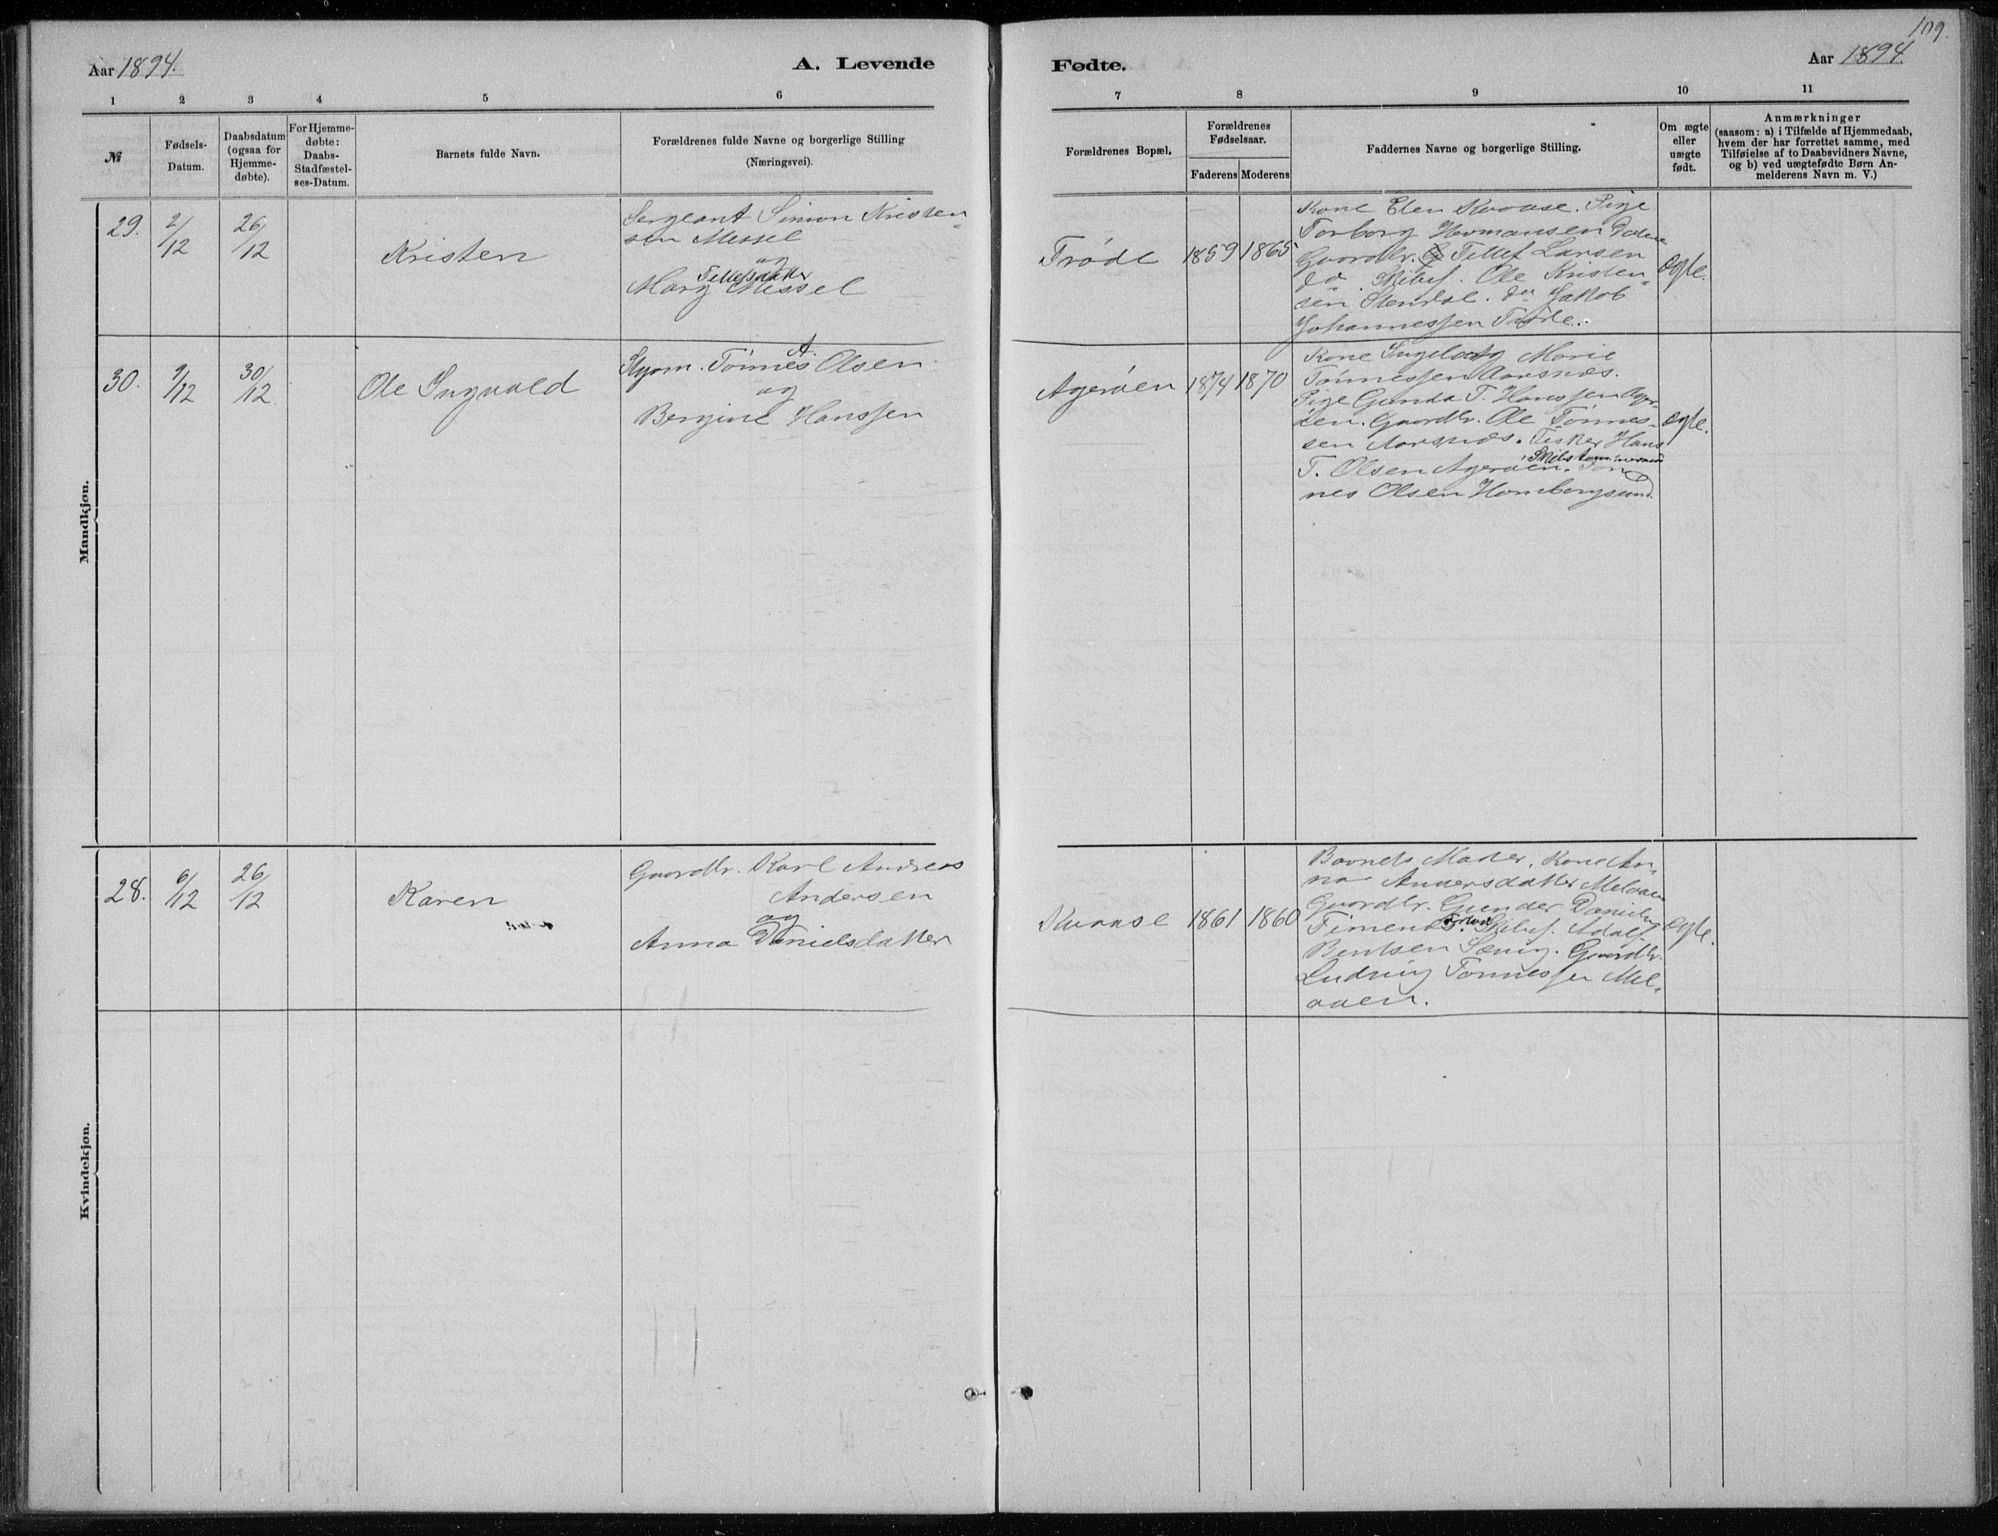 109.
Aar 1894.
A. Levende
Fødte.
Aar 1894.
1
2
3
4
5
6
7
8
9
10
11
№
Fødsels-
Datum.
Daabsdatum
(ogsaa for
Hjemme-
døbte).
For Hjemme-
døbte:
Daabs-
Stadfæstel-
ses-Datum.
Barnets fulde Navn.
Forældrenes fulde Navne og borgerlige Stilling
(Næringsvei).
Forældrenes Bopæl.
Forældrenes
Fødselsaar.
Faderens
Moderens
Faddernes Navne og borgerlige Stilling.
Om ægte
eller
uægte
født.
Anmærkninger
(saasom: a) i Tilfælde af Hjemmedaab,
hvem der har forrettet samme, med
Tilføielse af to Daabsvidners Navne,
og b) ved uægtefødte Børn An-
melderens Navn m. V.)
Mandkjøn.
29.
2/12
26/12
Kristen
Sergeant Simon Kristen
sen Messel
og
Tellefsdatter
Marg Messel
Trøde
1859
1865
Kone Elen Kvaase. Pige
Torborg Hermansen
Gaardbr. Tellef Larsen
do. Skibsf. Ole Kristen
sen Stendal. do Jakob
Johannessen Trøde.
ægte.
30.
9/12
30/12
Ole Ingvald
Styrm. Tønnes A. Olsen
og
Bergine Hanssen
Agerøen
1874
1870
Kone Ingeborg Marie
Tønnessen Aarsnæs.
Pige Gunda T. Hanssen Ager-
øen. Gaardbr. Ole Tønnes-
sen Aarsnæs. Fisker Hans
T. Olsen Agerøen. Skibstømmermand Tøn
nes Olsen Homborgsund.
ægte.
Kvindekjøn.
28.
6/12
26/12
Karen
Gaardbr. Karl Andreas
Andersen
og
Anna Danielsdatter
Kvaase
1861
1860
Barnets Moder. Kone An-
na Andersdatter Melaaen
Gaardbr. Gunder Daniels
Skibsf. Adolf
Bentsen Sænig. Gaardbr.
Ludvig Tønnessen Mel-
aaen.
ægte.